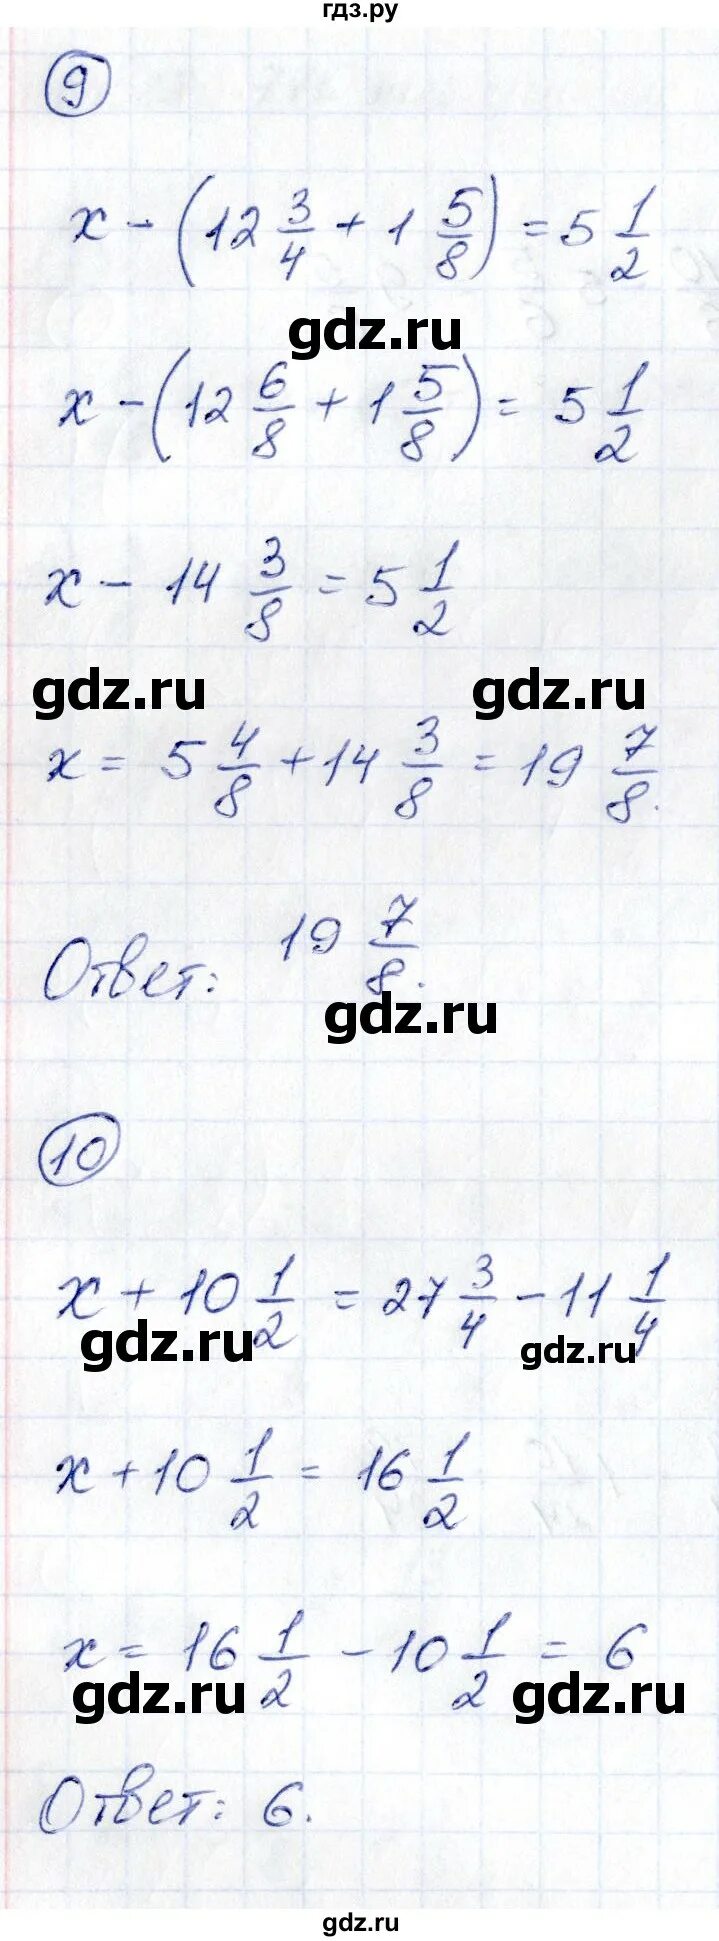 гдз.ру
9
x - (12 3/4 + 1 5/8) = 5 1/2
gdz.ru
x - (12 6/8 + 1 5/8) = 5 1/2
x - 14 3/8 = 5 1/2
gdz.ru gdz.ru
x = 5 4/8 + 14 3/8 = 19 7/8.
Ответ: 19 7/8.
gdz.ru
10
x + 10 1/2 = 27 3/4 - 11 1/4
gdz.ru gdz.ru
x + 10 1/2 = 16 1/2
x = 16 1/2 - 10 1/2 = 6
gdz.ru gdz.ru
Ответ: 6.
gdz.ru